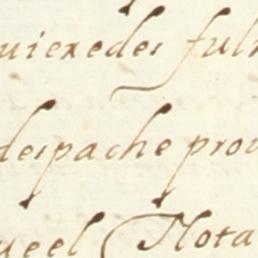 uieredes fulm
despache prov
ueel Nota